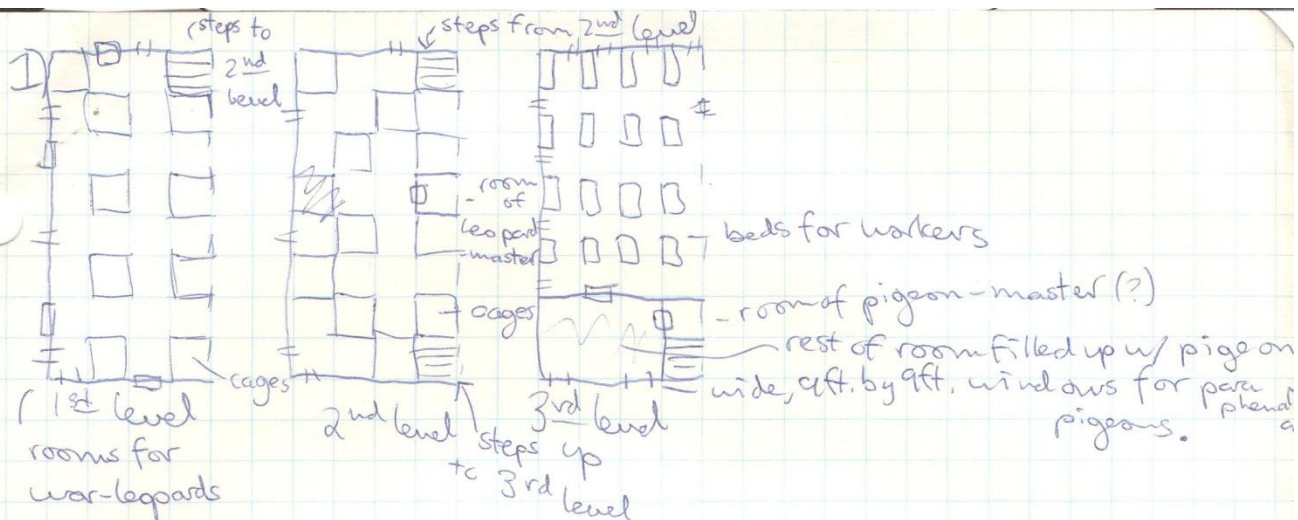 1
steps to
2nd
level
steps from 2nd level
room
of
leopard
-master
beds for workers
cages
room of pigeon-master (?)
rest of room filled up w/ pigeon
wide, 9ft. by 9ft. windows for para
pigeons.
cages
1st level
rooms for
war-leopards
2nd level
steps up
to 3rd
level
3rd level